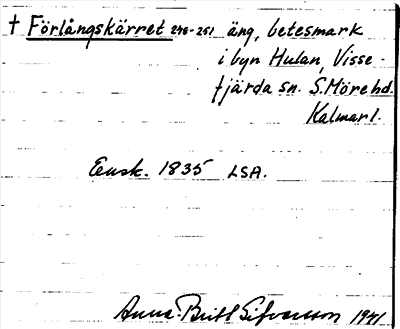 † Förlångskärret 248-251 äng, betesmark
i byn Hulan, Visse-
fjärda sn. S. Möre hd.
Kalmar l.
Ensk. 1835 LSA.
Anna-Britt Sifvarsson 1941